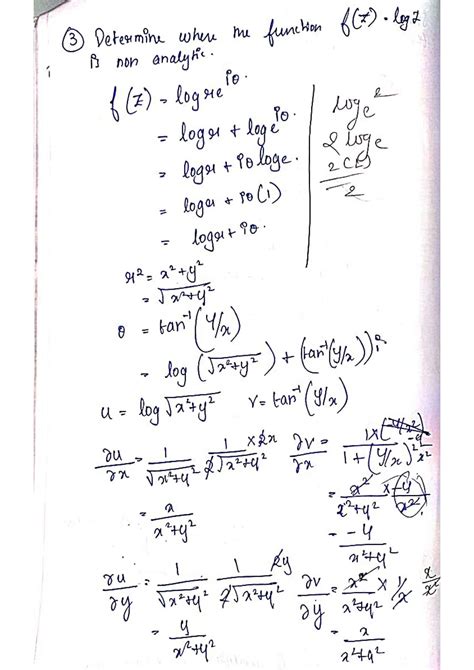 ③ Determine where the function f(z) = log z
is non analytic.
f(z) = log re^{iθ}
= log r + log e^{iθ}
= log r + iθ log e.
= log r + iθ (1)
= log r + iθ.
log e^2
2 log e
2
r^2 = x^2 + y^2
= √(x^2+y^2)
θ = tan^{-1} (y/x)
= log (√(x^2+y^2)) + (tan^{-1}(y/x)) i
u = log √(x^2+y^2)   v = tan^{-1} (y/x)
∂u/∂x = 1/√(x^2+y^2) 1×2x/2√(x^2+y^2)   ∂v/∂x = 1×(-y/x^2)/1+(y/x)^2
= x/x^2+y^2   = x^2/x^2+y^2 × -y/x^2
= -y/x^2+y^2
∂u/∂y = 1/√(x^2+y^2) 1 2y/2√(x^2+y^2)   ∂v/∂y = x^2/x^2+y^2 × 1/x
= y/x^2+y^2   = x/x^2+y^2